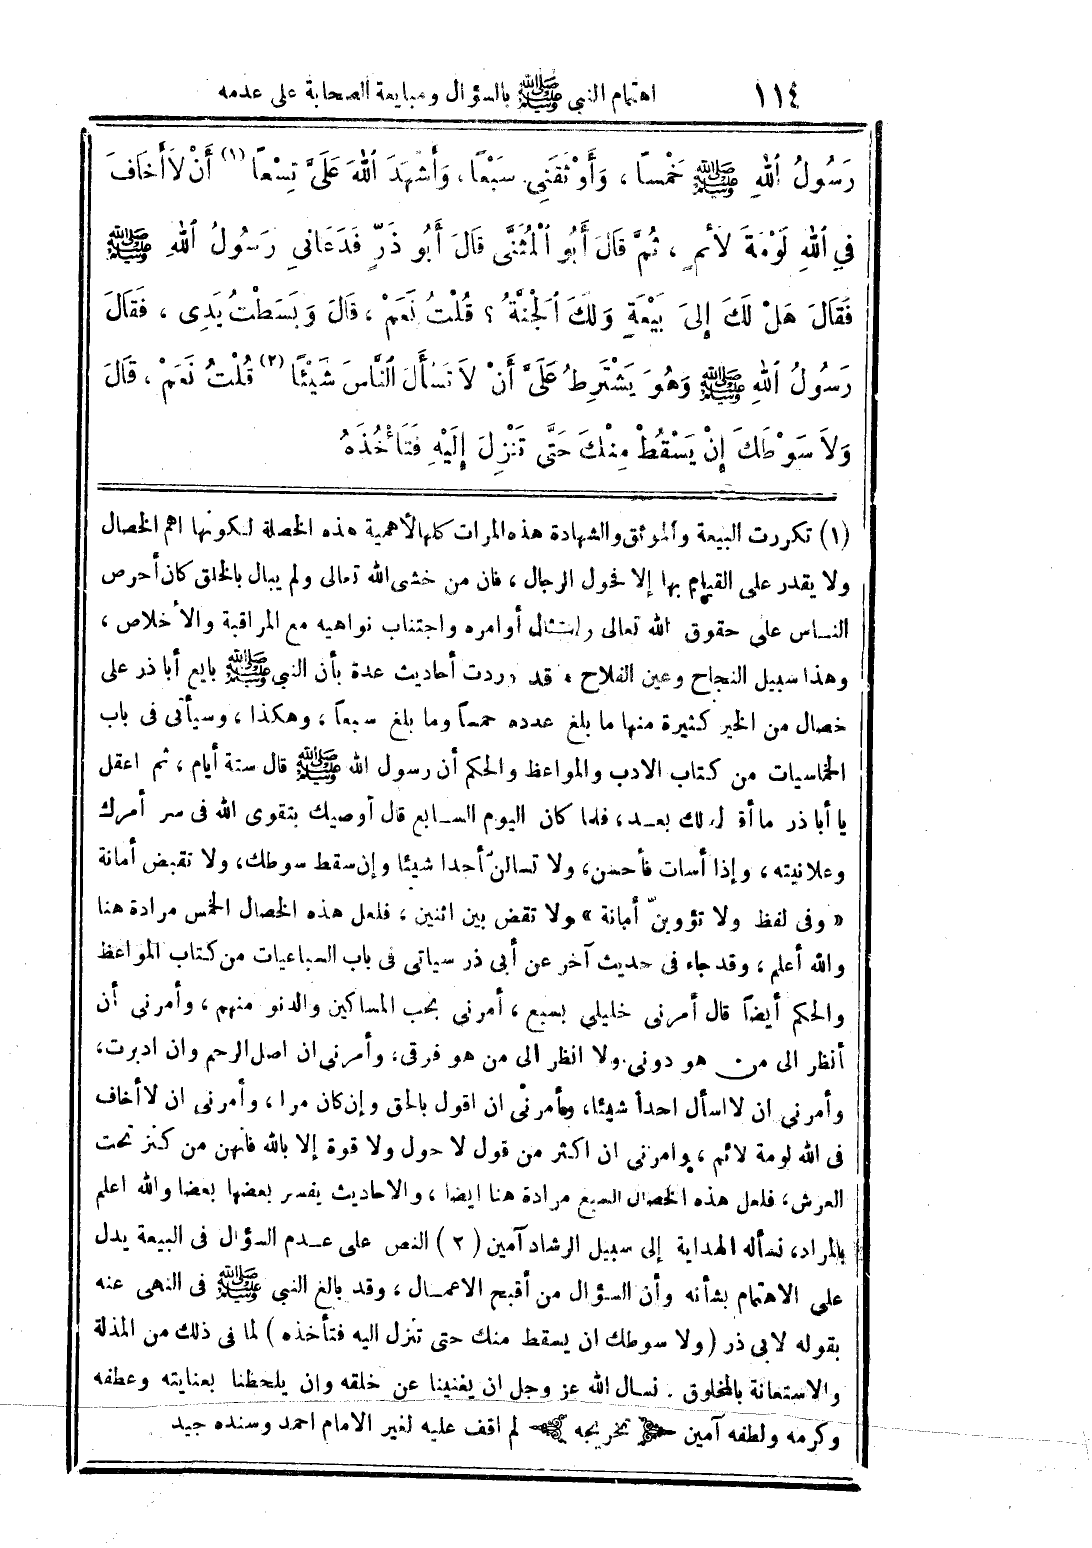 ١١٤ اهتمام النبي ﷺ بالسؤال ومبايعة الصحابة على عدمه
رَسُولُ ٱللهِ ﷺ خَمْسًا ، وَأَوْثَقَنِي سَبْعًا، وَأَشْهَدَ ٱللهَ عَلَيَّ تِسْعًا (١) أَنْ لاَ أَخَافَ
فِي ٱللهِ لَوْمَةَ لاَئمٍ ، ثُمَّ قَالَ أَبُو ٱلْمُثَنَّى قَالَ أَبُو ذَرٍّ فَدَعَانِي رَسُولُ ٱللهِ ﷺ
فَقَالَ هَلْ لَكَ إِلىَ بَيْعَةٍ وَلَكَ ٱلْجَنَّةُ ؟ قُلْتُ نَعَمْ ، قَالَ وَبَسَطْتُ يَدِى ، فَقَالَ
رَسُولُ ٱللهِ ﷺ وَهُوَ يَشْتَرِطُ عَلَيَّ أَنْ لاَ تَسْأَلَ النَّاسَ شَيْئًا (٢) قُلْتُ نَعَمْ ، قَالَ
وَلاَ سَوْطَكَ إِنْ يَسْقُطْ مِنْكَ حَتَّى تَنْزِلَ إِلَيْهِ فَتَأْخُذَهُ
(١) تكررت البيعة والموثق والشهادة هذه المرات كلها لأهمية هذه الخصلة لكونها اهم الخصال
ولا يقدر على القيام بها إلا فحول الرجال ، فان من خشى الله تعالى ولم يبال بالخلق كان أحرص
الناس على حقوق الله تعالى وامتثال أوامره واجتناب نواهيه مع المراقبة والأخلاص ،
وهذا سبيل النجاح وعين الفلاح ، قد وردت أحاديث عدة بأن النبي ﷺ بايع أبا ذر على
خصال من الخير كثيرة منها ما بلغ عدده خمساً وما بلغ سبعاً ، وهكذا ، وسيأتى فى باب
الخماسيات من كتاب الادب والمواعظ والحكم أن رسول الله ﷺ قال ستة أيام ، ثم اعقل
يا أبا ذر ما أقول لك بعد، فلما كان اليوم السابع قال أوصيك بتقوى الله فى سر أمرك
وعلانيته ، وإذا أسات فأحسن، ولا تسالنّ أحدا شيئا وإن سقط سوطك، ولا تقبض أمانة
« وفى لفظ ولا تؤوينّ أمانة » ولا تقض بين اثنين ، فلعل هذه الخصال الخمس مرادة هنا
والله أعلم ، وقد جاء فى حديث آخر عن أبى ذر سياتى فى باب السباعيات من كتاب المواعظ
والحكم أيضاً قال أمرنى خليلي بسبع ، أمرني بحب المساكين والدنو منهم ، وأمرني أن
أنظر الى من هو دوني ولا انظر الى من هو فوقى، وأمرنى ان اصل الرحم وان ادبرت،
وأمرني ان لا اسأل احداً شيئا، وأمرنى ان اقول بالحق وإن كان مرا ، وأمرنى ان لا أخاف
فى الله لومة لائم ، وامرنى ان اكثر من قول لا حول ولا قوة إلا بالله فانهن من كنز تحت
العرش، فلعل هذه الخصال السبع مرادة هنا ايضا ، والاحاديث يفسر بعضها بعضا والله اعلم
بالمراد، نسأله الهداية إلى سبيل الرشاد آمين (٢) النص على عدم السؤال فى البيعة يدل
على الاهتمام بشأنه وأن السؤال من أقبح الاعمال ، وقد بالغ النبي ﷺ فى النهى عنه
بقوله لابى ذر (ولا سوطك ان يسقط منك حتى تنزل اليه فتأخذه) لما فى ذلك من المذلة
والاستعانة بالمخلوق . نسال الله عز وجل ان يغنينا عن خلقه وان يلحظنا بعنايته وعطفه
وكرمه ولطفه آمين تخريجه لم اقف عليه لغير الامام احمد وسنده جيد